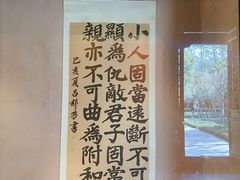 小人固當遠斷不可
顯為仇敵君子固當
親亦不可曲為附和